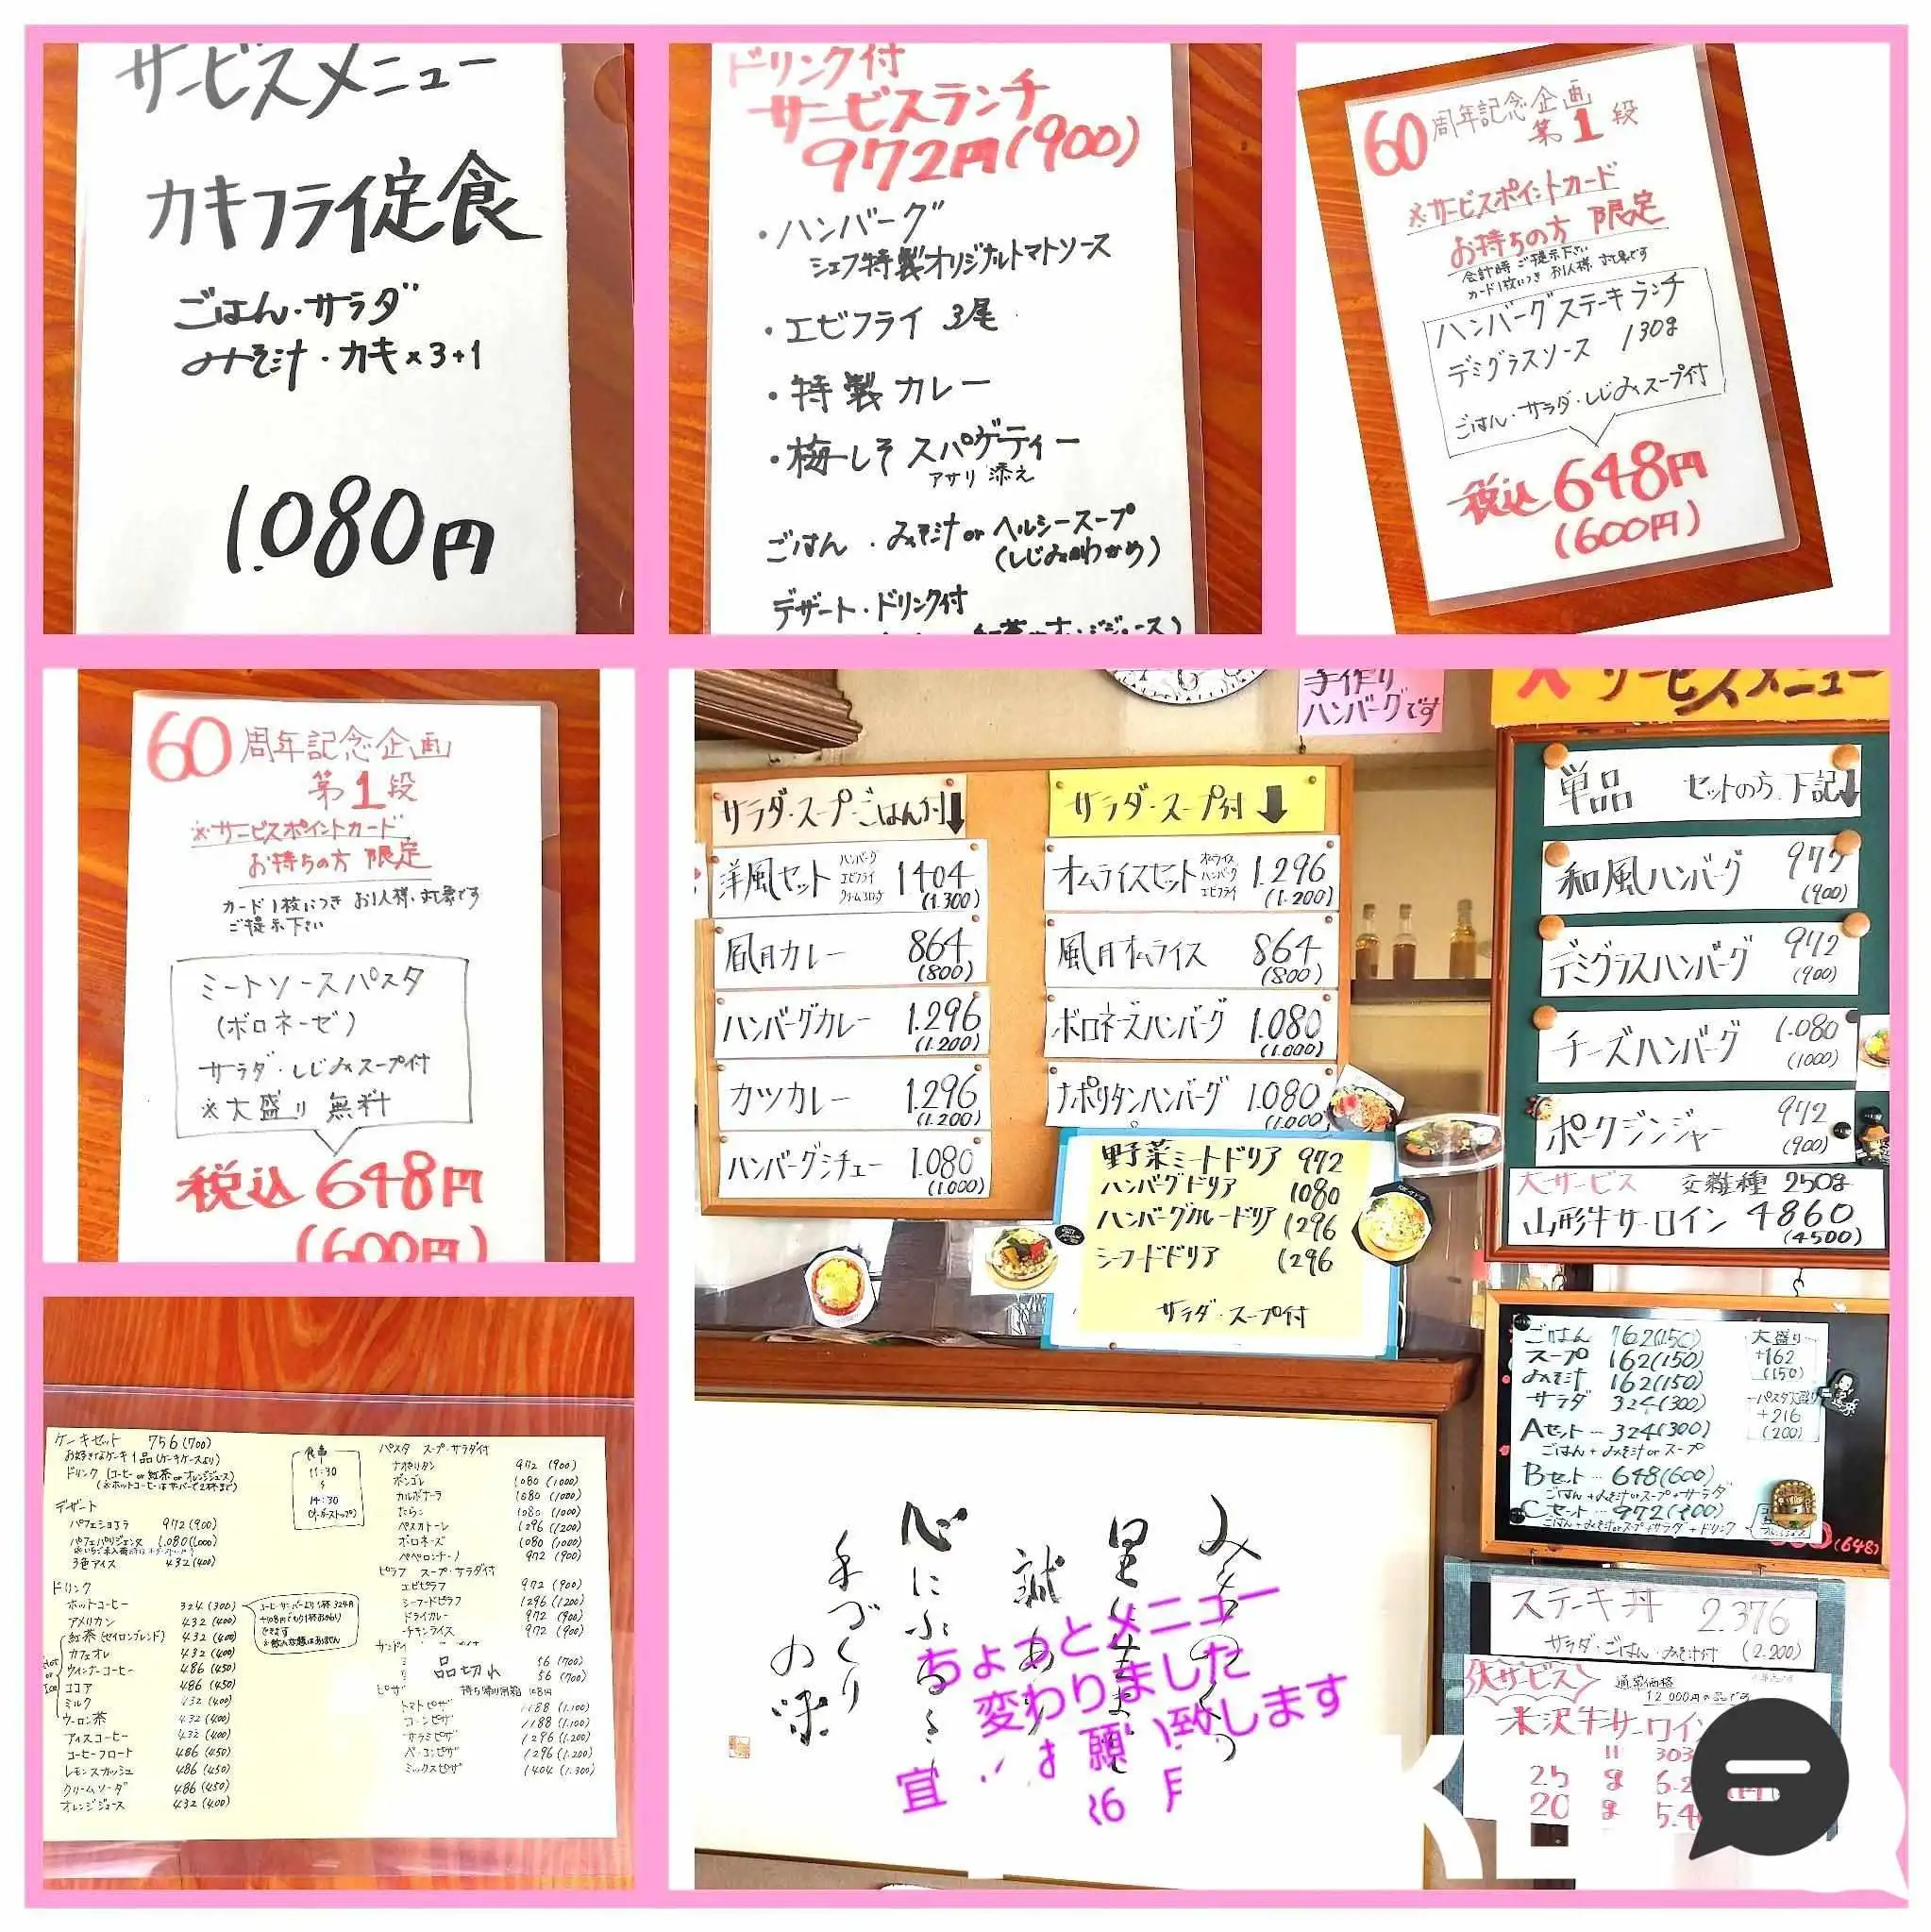 サービスメニュー
カキフライ定食
ごはん・サラダ
みそ汁・カキ×3+1
1.080円
ドリンク付
サービスランチ
972円(900)
・ハンバーグ
シェフ特製オリジナルトマトソース
・エビフライ 3尾
・特製カレー
・梅しそスパゲティー
アサリ添え
ごはん・みそ汁orヘルシースープ
(しじみorわかめ)
デザート・ドリンク付
60周年記念企画
第1段
※サービスポイントカード
お持ちの方 限定
会計時ご提示下さい
カード1枚につきお1人様対象です
ハンバーグステーキランチ
デミグラスソース 130g
ごはん・サラダ・しじみスープ付
税込648円
(600円)
60周年記念企画
第1段
※サービスポイントカード
お持ちの方 限定
カード1枚につき お1人様対象です
ご提示下さい
ミートソースパスタ
(ボロネーゼ)
サラダ・しじみスープ付
※大盛り 無料
税込648円
(600円)
手作り
ハンバーグです
サラダ・スープ・ごはん付↓
洋風セット ハンバーグ エビフライ クリームコロッケ 1404 (1.300)
風月カレー 864 (800)
ハンバーグカレー 1.296 (1.200)
カツカレー 1.296 (1.200)
ハンバーグシチュー 1.080 (1.000)
サラダ・スープ付↓
オムライスセット オムライス ハンバーグ エビフライ 1.296 (1.200)
風月オムライス 864 (800)
ボロネーズハンバーグ 1.080 (1.000)
ナポリタンハンバーグ 1.080 (1.000)
野菜ミートドリア 972
ハンバーグドリア 1080
ハンバーグカレードリア 1296
シーフードドリア 1296
サラダ・スープ付
サービスメニュー
単品 セットの方下記↓
和風ハンバーグ 972 (900)
デミグラスハンバーグ 972 (900)
チーズハンバーグ 1.080 (1000)
ポークジンジャー 972 (900)
大サービス 交雑種 250g
山形牛サーロイン 4860 (4500)
ごはん 162(150)
スープ 162(150)
みそ汁 162(150)
サラダ 324(300)
大盛り
+162
(150)
パスタ大盛り
+216
(200)
Aセット…324(300)
ごはん+みそ汁orスープ
Bセット…648(600)
ごはん+みそ汁orスープ+サラダ
Cセット…972(900)
ごはん+みそ汁orスープ+サラダ+ドリンク
(648)
ステーキ丼 2.376
サラダ・ごはん・みそ汁付 (2.200)
大サービス 通常価格
12000円の品です
米沢牛サーロイン
ケーキセット 756(700)
お好きなケーキ1品(ケーキケースより)
ドリンク(コーヒーor紅茶orオレンジジュース)
(※ホットコーヒーはサーバーで2杯まで)
食事
11:30
〜
14:30
(オーダーストップ)
デザート
パフェショコラ 972(900)
パフェパリジェンヌ 1.080(1.000)
3色アイス 432(400)
ドリンク
ホットコーヒー 324(300)
アメリカン 432(400)
紅茶(セイロンブレンド) 432(400)
カフェオレ 432(400)
ウインナーコーヒー 486(450)
ココア 486(450)
ミルク 432(400)
ウーロン茶 432(400)
アイスコーヒー 432(400)
コーヒーフロート 486(450)
レモンスカッシュ 486(450)
クリームソーダ 486(450)
オレンジジュース 432(400)
Hot
or
Ice
パスタ スープ・サラダ付
ナポリタン 972(900)
ボンゴレ 1080(1000)
カルボナーラ 1080(1000)
たらこ 1080(1000)
ペスカトーレ 1296(1200)
ボロネーズ 1080(1000)
ペペロンチーノ 972(900)
ピラフ スープ・サラダ付
エビピラフ 972(900)
シーフードピラフ 1296(1200)
ドライカレー 972(900)
チキンライス 972(900)
品切れ
56(700)
56(700)
ピザ 持ち帰り用箱
トマトピザ 1188(1.100)
コーンピザ 1188(1.100)
サラミピザ 1296(1.200)
ベーコンピザ 1296(1.200)
ミックスピザ 1404(1.300)
心にふるる
手づくり
の味
ちょっとメニュー
変わりました
願い致します